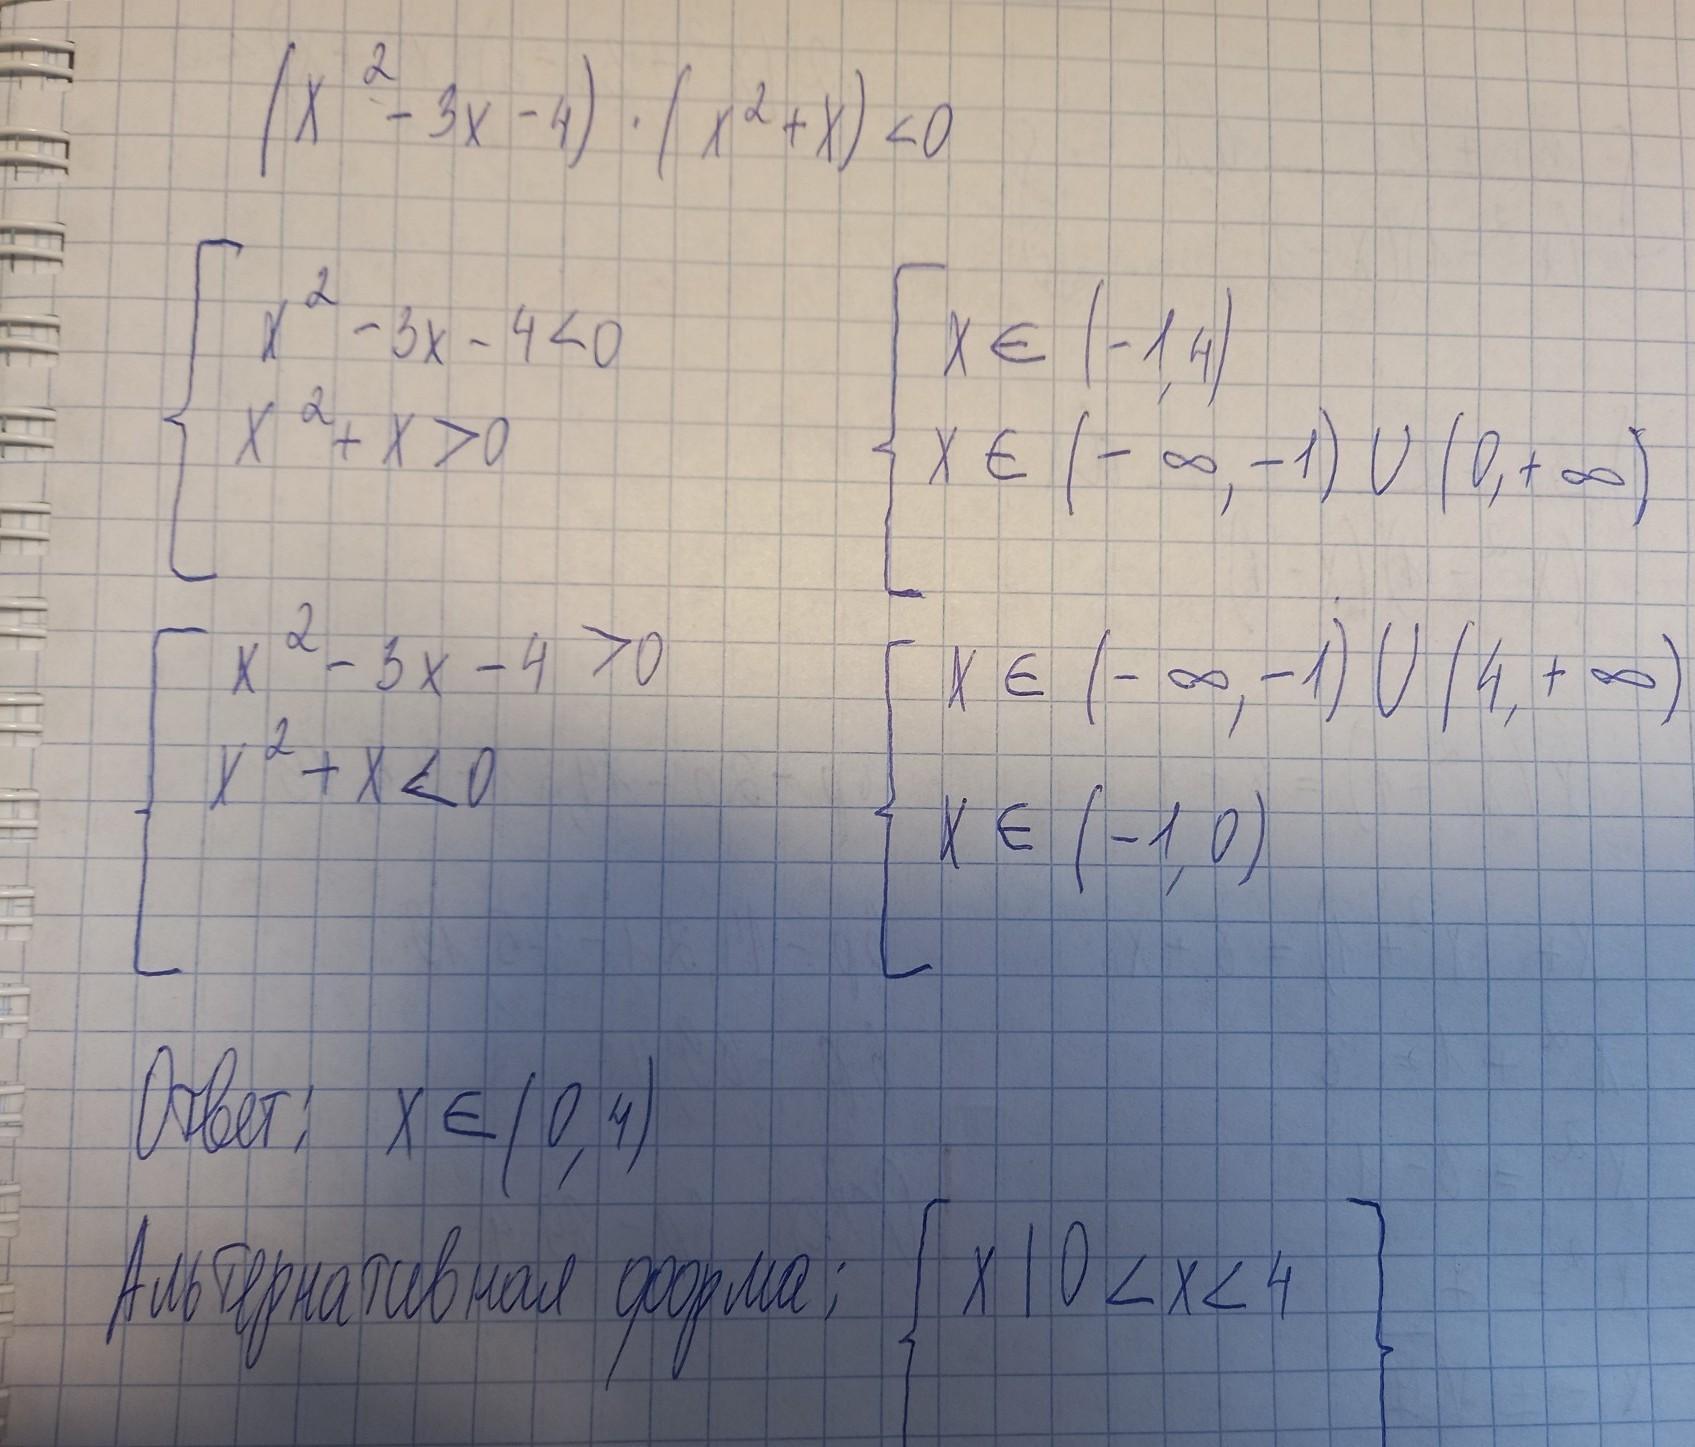 (x² - 3x - 4) · (x² + x) < 0
{ x² - 3x - 4 < 0
x² + x > 0
{ x ∈ (-1, 4)
x ∈ (-∞, -1) ∪ (0, +∞)
{ x² - 3x - 4 > 0
x² + x < 0
{ x ∈ (-∞, -1) ∪ (4, +∞)
x ∈ (-1, 0)
Ответ: x ∈ (0, 4)
Альтернативная форма: { x | 0 < x < 4 }